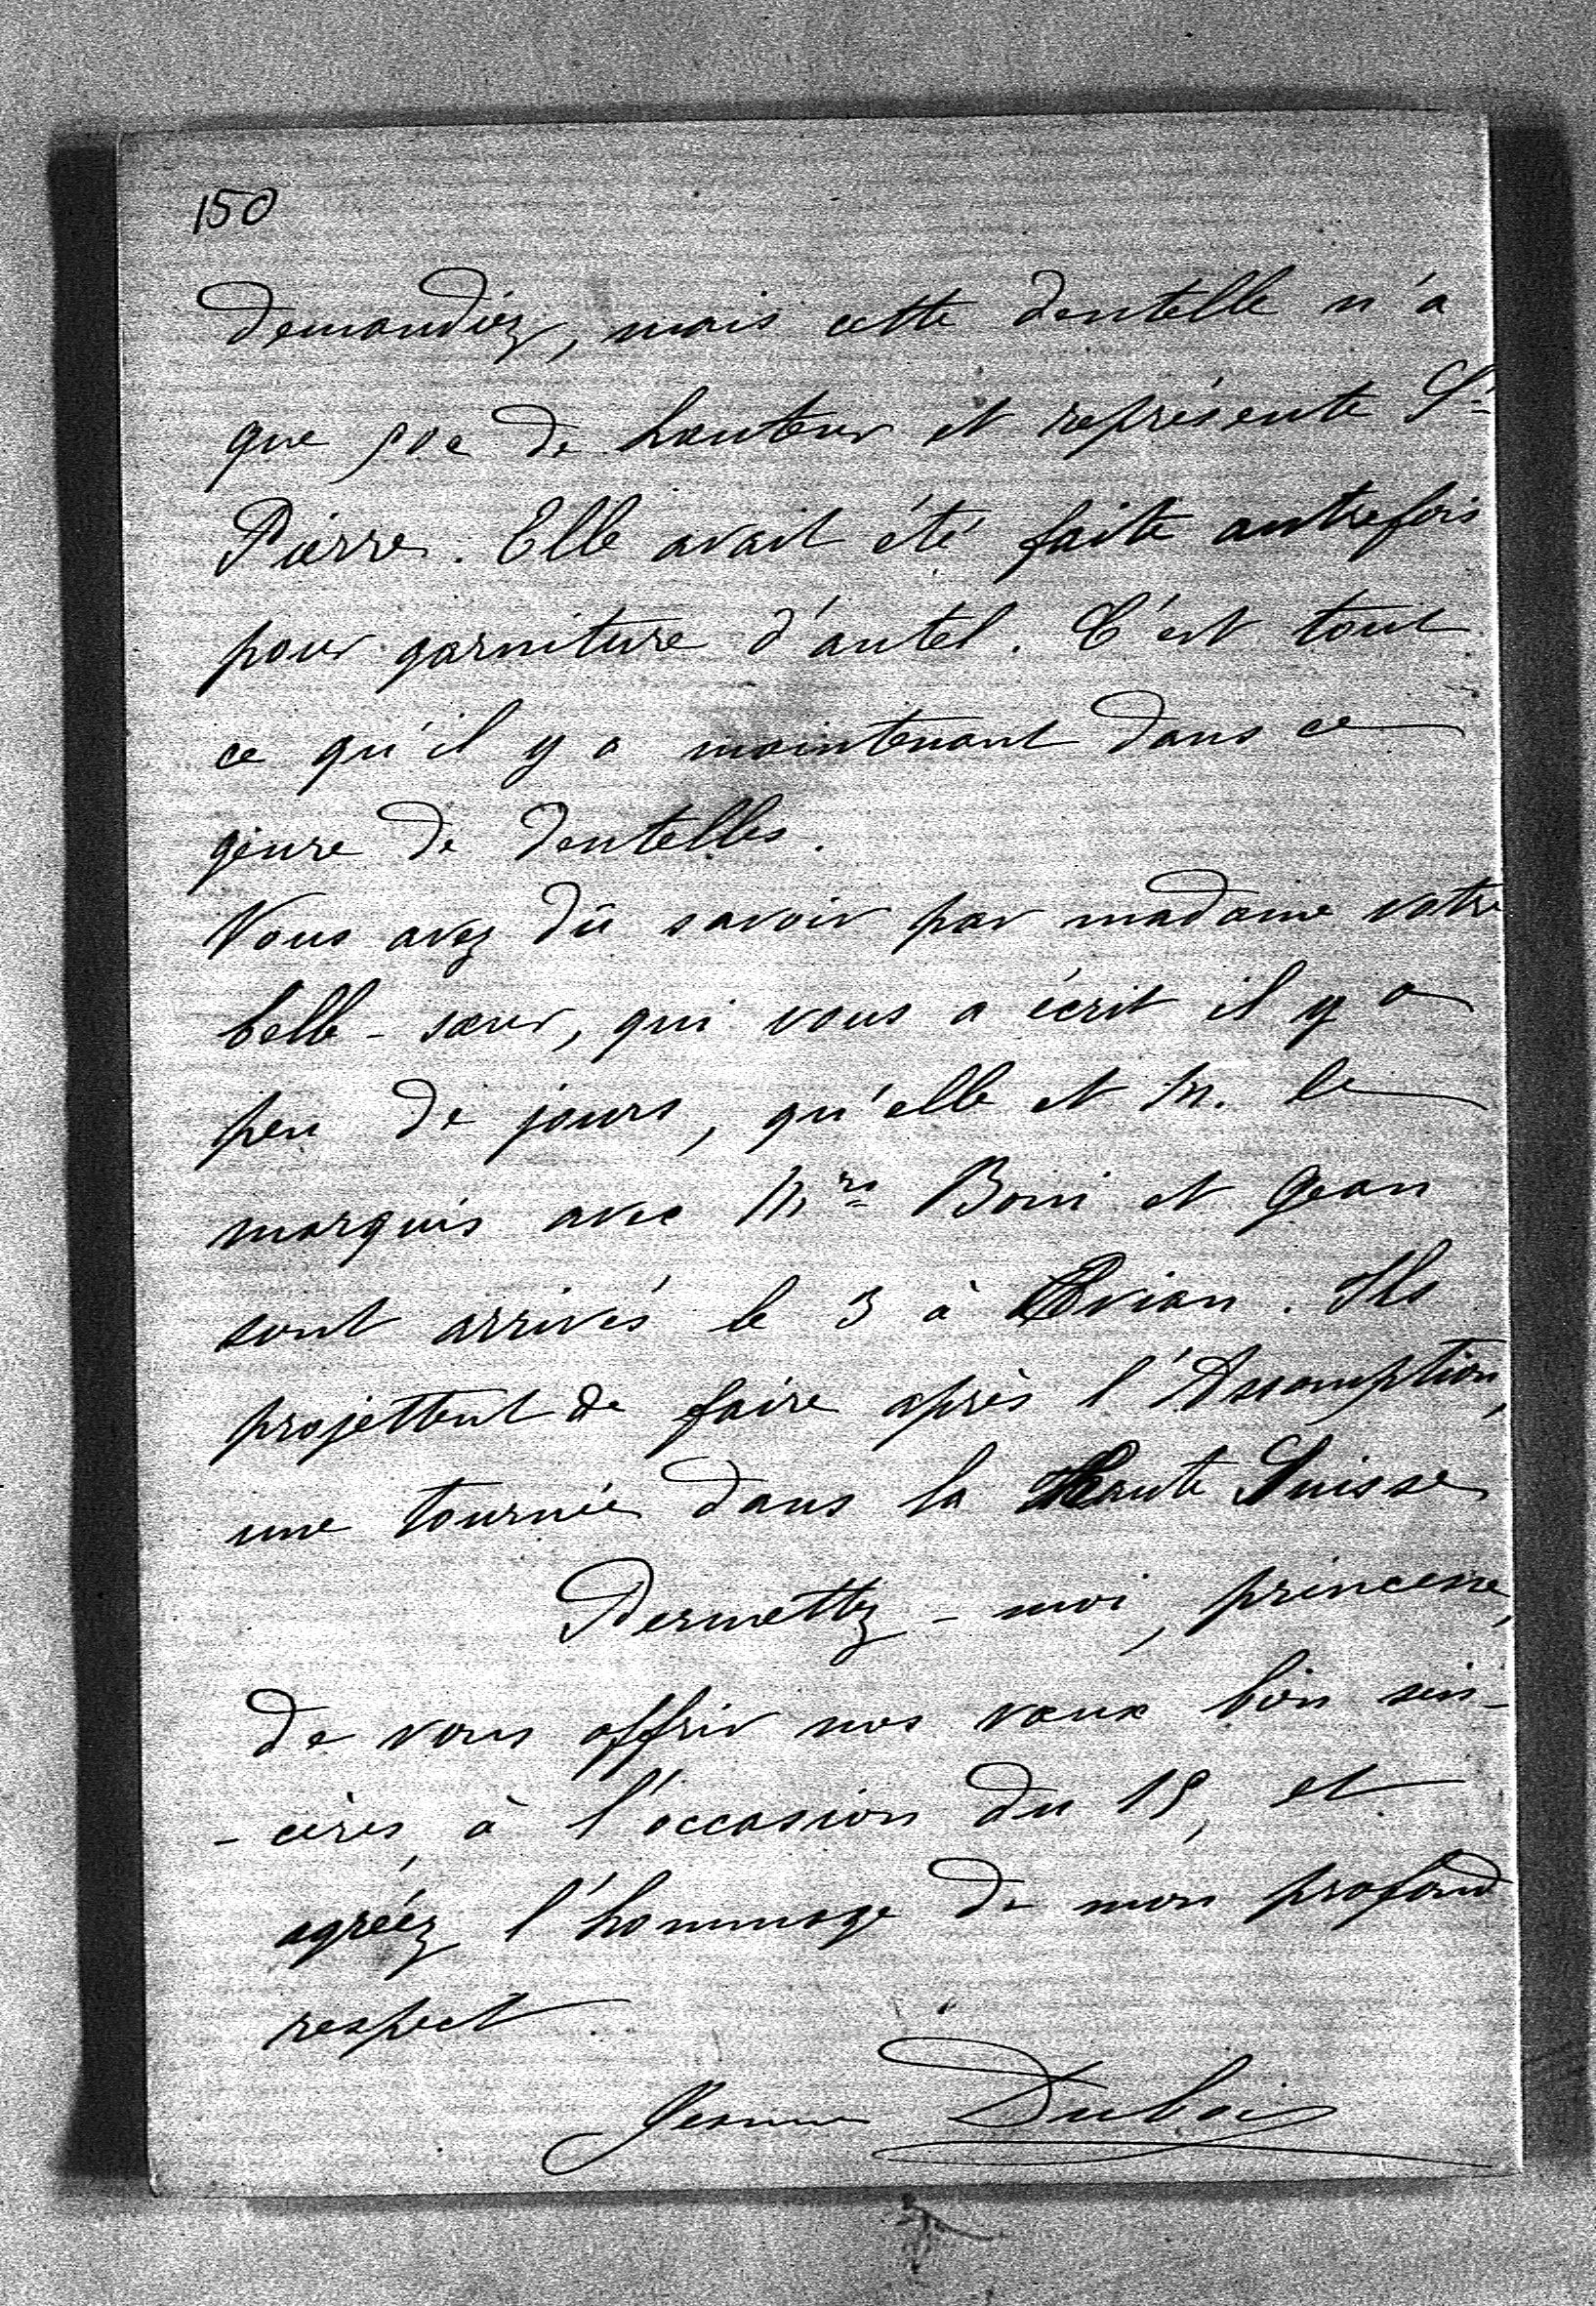 150
demandiéz, mais cette dentelle n'a
que 50c de hauteur et représente St
Pierre. Elle avait été faite autrefois
pour garniture d'autel. C'est tout
ce qu'il y a maintenant dans ce
genre de dentelles.
Vous avez dû savoir par madame votre
belle-sœur, qui vous a écrit il y a
peu de jours, qu'elle et M. le
marquis avec Mrs Boni et Jean
sont arrivés le 3 à Evian. Ils
projettent de faire après l'Assomption,
une tournée dans la Haute Suisse
Permettez-moi, princesse,
de vous offrir nos vœux bien sin-
-cères, à l'occasion du 15, et
agréez l'hommage de mon profond
respect.
Jeanne Dubois